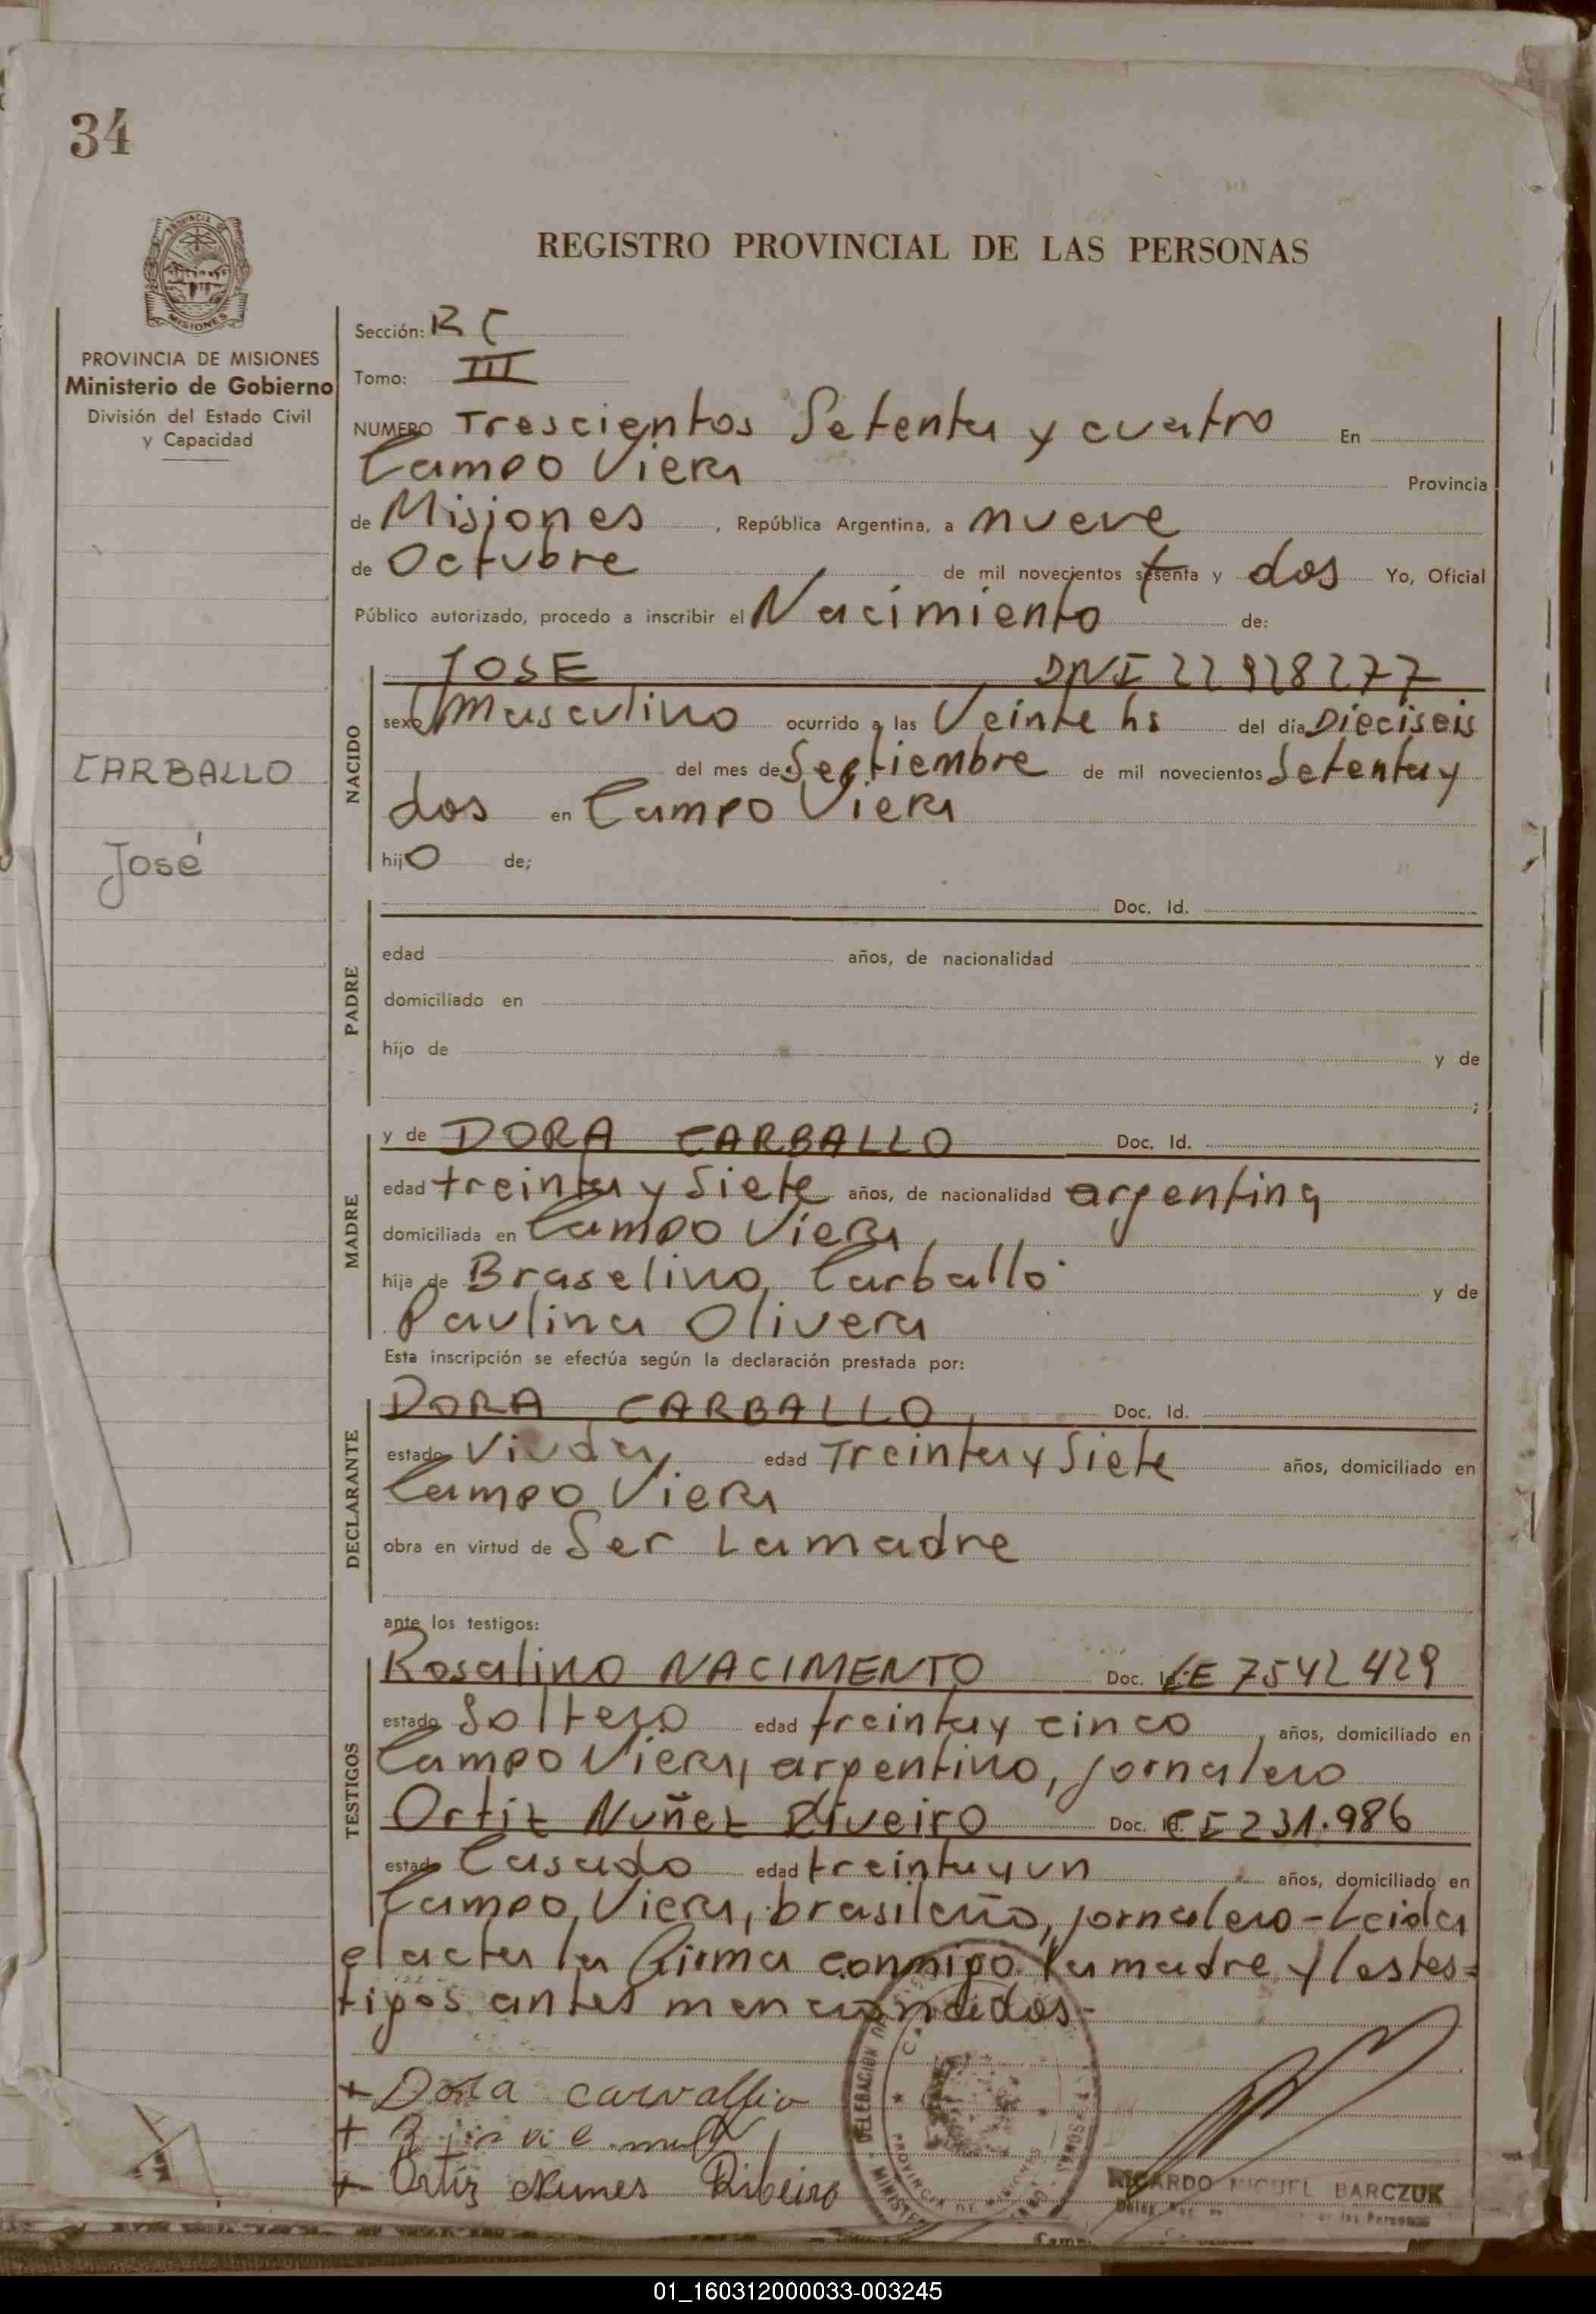 34
REGISTRO PROVINCIAL DE LAS PERSONAS
MISIONES
PROVINCIA DE MISIONES
Ministerio de Gobierno
División del Estado Civil
y Capacidad
CARBALLO
José
Sección: RC
Tomo: III
NUMERO Trescientos Setenta y cuatro En
Campo Viera Provincia
de Misiones, República Argentina, a nueve
de Octubre de mil novecientos setenta y dos Yo, Oficial
Público autorizado, procedo a inscribir el Nacimiento de:
NACIDO
JOSE DNI 22928277
sexo Masculino ocurrido a las Veinte hs del día Dieciseis
del mes de Septiembre de mil novecientos Setenta y
dos en Campo Viera
hijo de;
PADRE
Doc. Id.
edad años, de nacionalidad
domiciliado en
hijo de y de
;
MADRE
y de DORA CARBALLO Doc. Id.
edad treinta y Siete años, de nacionalidad argentina
domiciliada en Campo Viera,
hija de Braselino Carballo y de
Paulina Olivera
Esta inscripción se efectúa según la declaración prestada por:
DECLARANTE
DORA CARBALLO, Doc. Id.
estado Viuda, edad Treinta y Siete años, domiciliado en
Campo Viera
obra en virtud de Ser La madre
ante los testigos:
TESTIGOS
Rosalino NACIMENTO Doc. Id. LE 7542429
estado Soltero edad treinta y cinco, años, domiciliado en
Campo Viera, argentino, jornalero
Ortiz Nuñez Riveiro Doc. Id. CI 231.986
estado Casado edad treinta y un años, domiciliado en
Campo Viera, brasileño, jornalero - Leida
el acta la firma conmigo la madre y los tes-
tigos antes mencionados.-
+ Dora carvallio
+
+ Ortiz Nunes Ribeiro
DELEGACION
PROVINCIA DE MISIONES
RICARDO MIGUEL BARCZUK
01_160312000033-003245